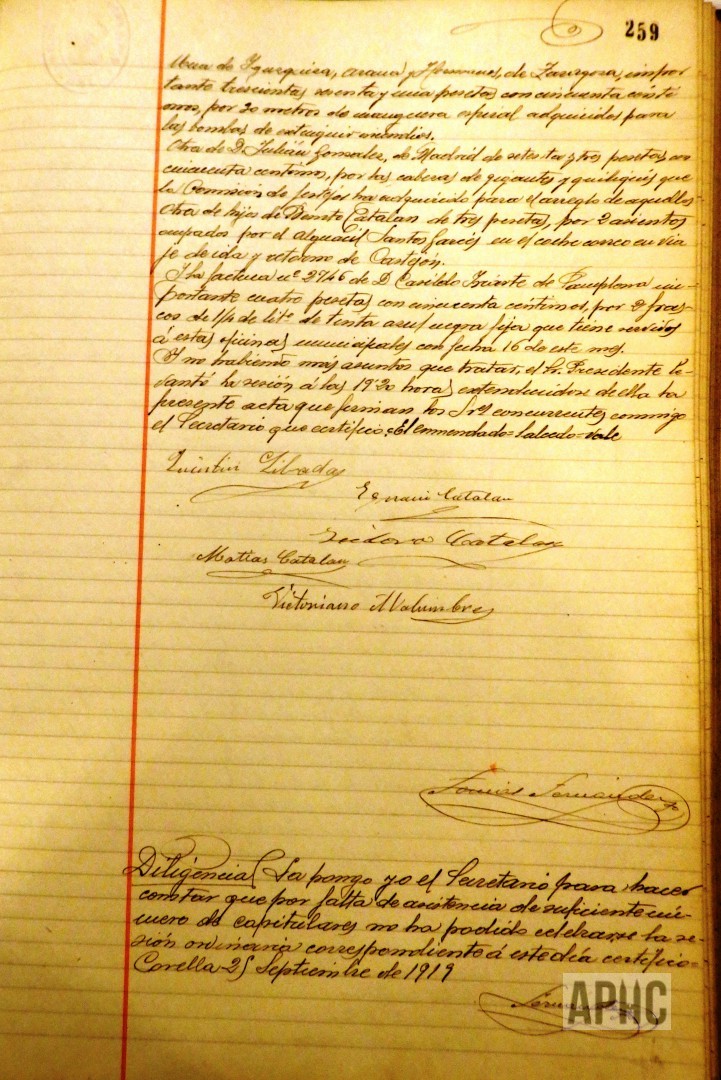 259
Una de Yzurquiza, Arana y Hermanos, de Zaragoza, impor
tante trescientas setenta y una pesetas con cincuenta cénti
mos, por 20 metros de manguera espiral adquiridos para
las bombas de extinguir incendios.
Otra de D. Julián Gonzalez, de Madrid de setenta y tres pesetas con
cincuenta centimos, por las cabezas de gigantes y quiliquis que
la Comisión de festejos ha adquirido para el arreglo de aquellos.
Otra de hijos de Benito Catalan de tres pesetas, por 2 asientos
ocupados por el alguacil Santos Garcés en el coche correo en via
je de ida y retorno de Castejón.
Y la factura nº 2746 de D. Casildo Iriarte de Pamplona im
portante cuatro pesetas con cincuenta centimos, por 2 fras-
cos de 1/4 de litº de tinta azul negra fija que tiene servidos
á estas oficinas municipales con fecha 16 de este mes.
Y no habiendo más asuntos que tratar, el Sr. Presidente le-
vantó la sesión á las 19'20 horas extendiendose de ella la
presente acta que firman los Sres concurrentes conmigo
el Secretario que certifico. El enmendado=Salcedo=Vale
Quintin Libadas
Catalan
Isidoro Catalan
Matias Catalan
Victoriano Malumbres
Tomás Fernández
Diligencia La pongo yo el Secretario para hacer
constar que por falta de asistencia de suficiente nú-
mero de capitulares no ha podido celebrarse la se-
sión ordinaria correspondiente á este día certifico=
Corella 25 Septiembre de 1919
APHC